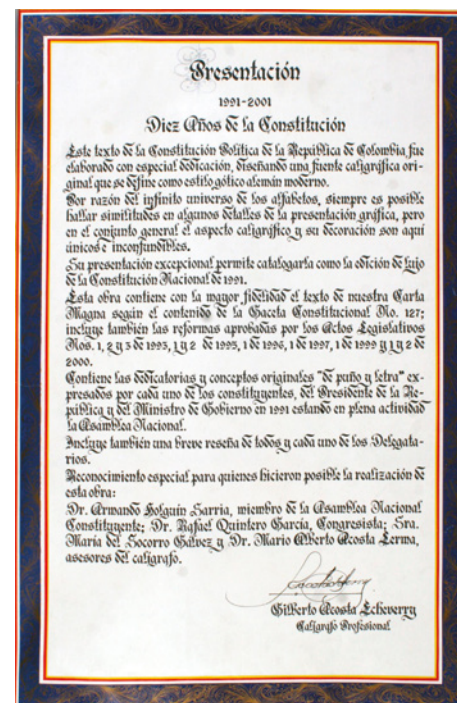 Presentación
1991-2001
Diez Años de la Constitución
Este texto de la Constitución Política de la República de Colombia, fue
elaborado con especial dedicación, diseñando una fuente caligráfica ori-
ginal que se define como estilo gótico alemán moderno.
Por razón del infinito universo de los alfabetos, siempre es posible
hallar similitudes en algunos detalles de la presentación gráfica, pero
en el conjunto general el aspecto caligráfico y su decoración son aquí
únicos e inconfundibles.
Su presentación excepcional permite catalogarla como la edición de lujo
de la Constitución Nacional de 1991.
Esta obra contiene con la mayor fidelidad el texto de nuestra Carta
Magna según el contenido de la Gaceta Constitucional No. 127;
incluye también las reformas aprobadas por los Actos Legislativos
Nos. 1, 2 y 3 de 1993, 1 y 2 de 1995, 1 de 1996, 1 de 1997, 1 de 1999 y 1 y 2 de
2000.
Contiene las dedicatorias y conceptos originales "de puño y letra" ex-
presados por cada uno de los constituyentes, del Presidente de la Re-
pública y del Ministro de Gobierno en 1991 estando en plena actividad
la Asamblea Nacional.
Incluye también una breve reseña de todos y cada uno de los Delegata-
rios.
Reconocimiento especial para quienes hicieron posible la realización de
esta obra:
Dr. Armando Holguín Sarria, miembro de la Asamblea Nacional
Constituyente; Dr. Rafael Quintero García, Congresista; Sra.
María del Socorro Gálvez y Dr. Mario Alberto Acosta Lerma,
asesores del calígrafo.
Gilberto Acosta Echeverry
Calígrafo Profesional